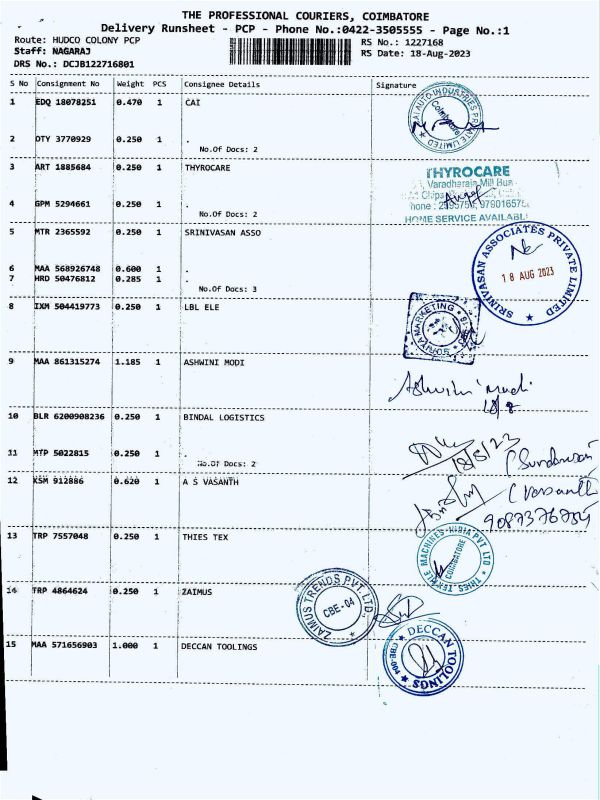 THE PROFESSIONAL COURIERS, COIMBATORE
Delivery Runsheet - PCP - Phone No.:0422-3505555 - Page No.:1
Route: HUDCO COLONY PCP
RS No.: 1227168
Staff: NAGARAJ
RS Date: 18-Aug-2023
DRS No.: DCJB122716801
S No Consignment No Weight PCS Consignee Details Signature
1 EDQ 18078251 0.470 1 CAI
2 DTY 3770929 0.250 1 .
No.Of Docs: 2
3 ART 1885684 0.250 1 THYROCARE
THYROCARE
Varadharaja Mill
4 GPM 5294661 0.250 1 .
No.Of Docs: 2
HOME SERVICE AVAILABL
5 MTR 2365592 0.250 1 SRINIVASAN ASSO
SRINIVASAN ASSOCIATES PRIVATE LIMITED
18 AUG 2023
6 MAA 568926748 0.600 1 .
7 HRD 50476812 0.285 1 .
No.Of Docs: 3
8 IXM 504419773 0.250 1 LBL ELE
MARKETING
9 MAA 861315274 1.185 1 ASHWINI MODI
Ashwini Modi
18/8
10 BLR 6200908236 0.250 1 BINDAL LOGISTICS
18/8/23
11 MTP 5022815 0.250 1 .
No.Of Docs: 2
12 KSM 912886 0.620 1 A S VASANTH
(Vasanth)
13 TRP 7557048 0.250 1 THIES TEX
COIMBATORE
14 TRP 4864624 0.250 1 ZAIMUS
ZAIMUS TRENDS PVT. LTD.
CBE-04
15 MAA 571656903 1.000 1 DECCAN TOOLINGS
DECCAN TOOLINGS